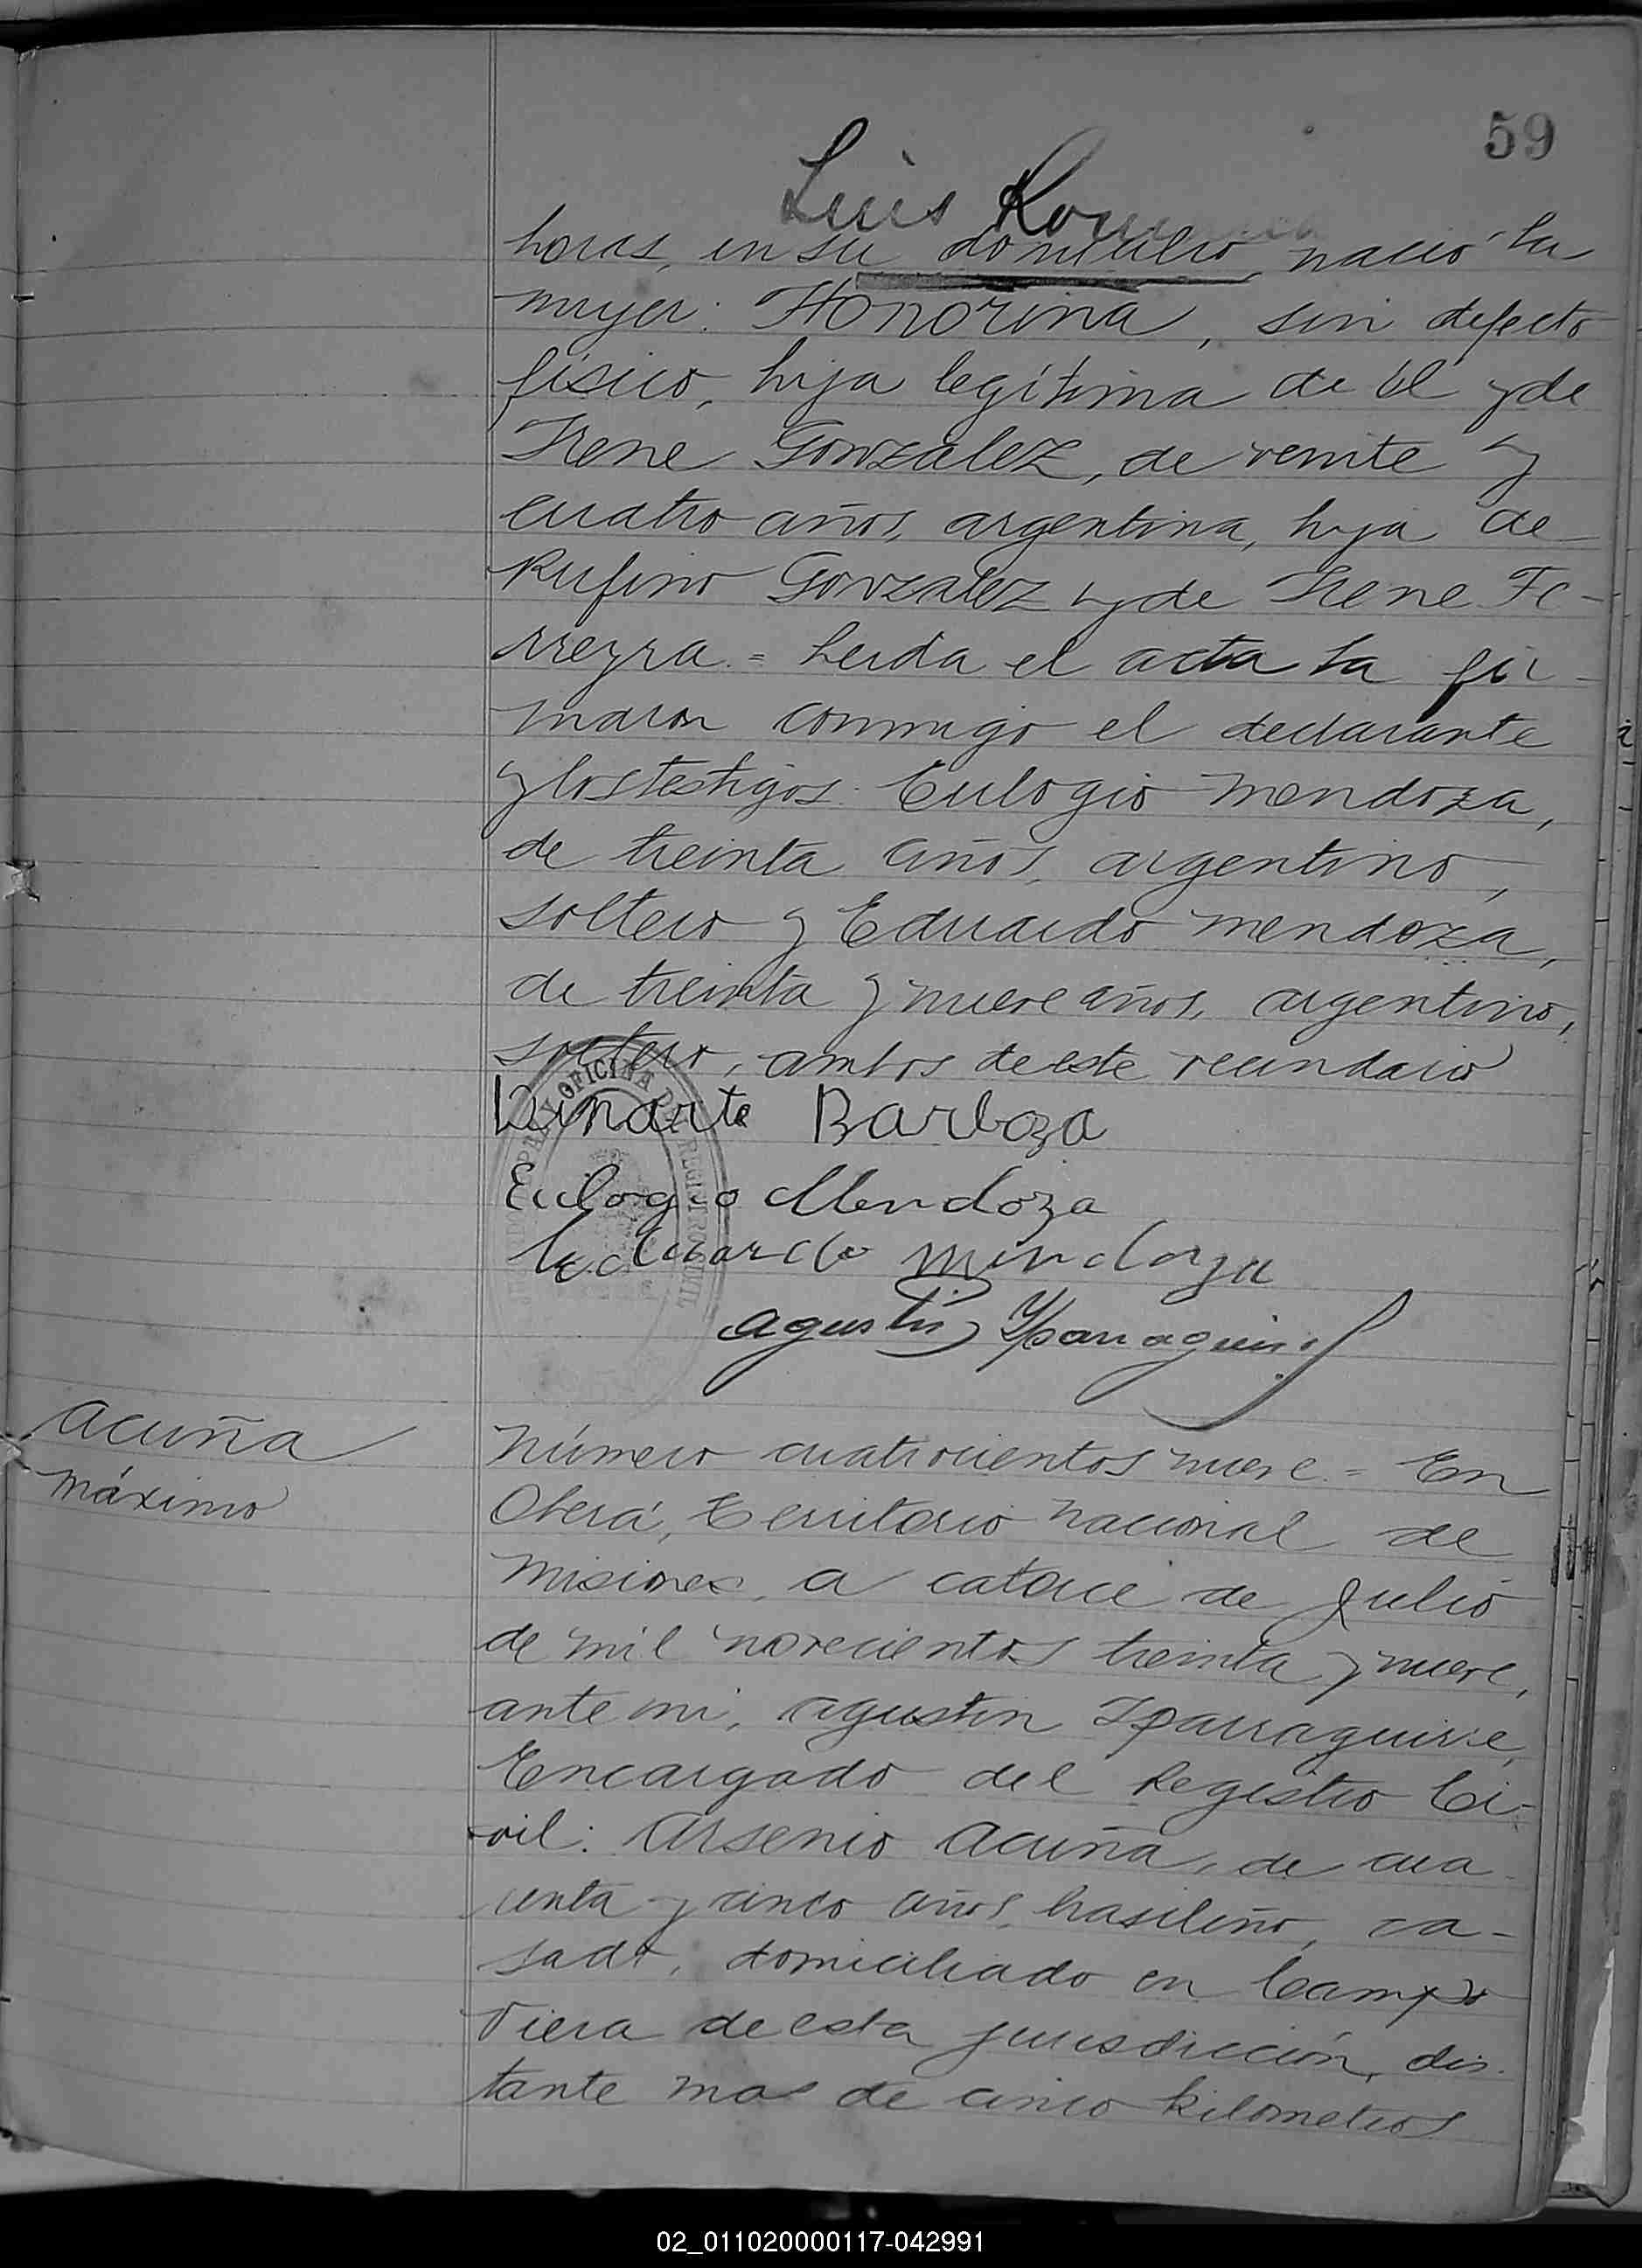 59
Luis
horas, en su domicilio, nació la
mujer: Honorina, sin defecto
físico, hija legítima de él y de
Irene González, de veinte y
cuatro años, argentina, hija de
Rufino González y de Irene Fe-
rreyra.= Leída el acta la fir-
maron conmigo el declarante
y los testigos: Eulogio Mendoza,
de treinta años, argentino,
soltero y Eduardo Mendoza,
de treinta y nueve años, argentino,
soltero, ambos de este vecindario
Dinarte Barboza
Eulogio Mendoza
Eduardo Mendoza
Agustín Yparraguirre
OFICINA REGISTRO CIVIL
Acuña
Máximo
Número cuatrocientos nueve.= En
Oberá, Territorio Nacional de
Misiones, a catorce de Julio
de mil novecientos treinta y nueve,
ante mí, Agustín Iparraguirre,
Encargado del Registro Ci-
vil: Arsenio Acuña, de cua
renta y cinco años, brasileño, ca-
sado, domiciliado en Campo
Viera de esta jurisdicción, dis-
tante mas de cinco kilometros
02_011020000117-042991